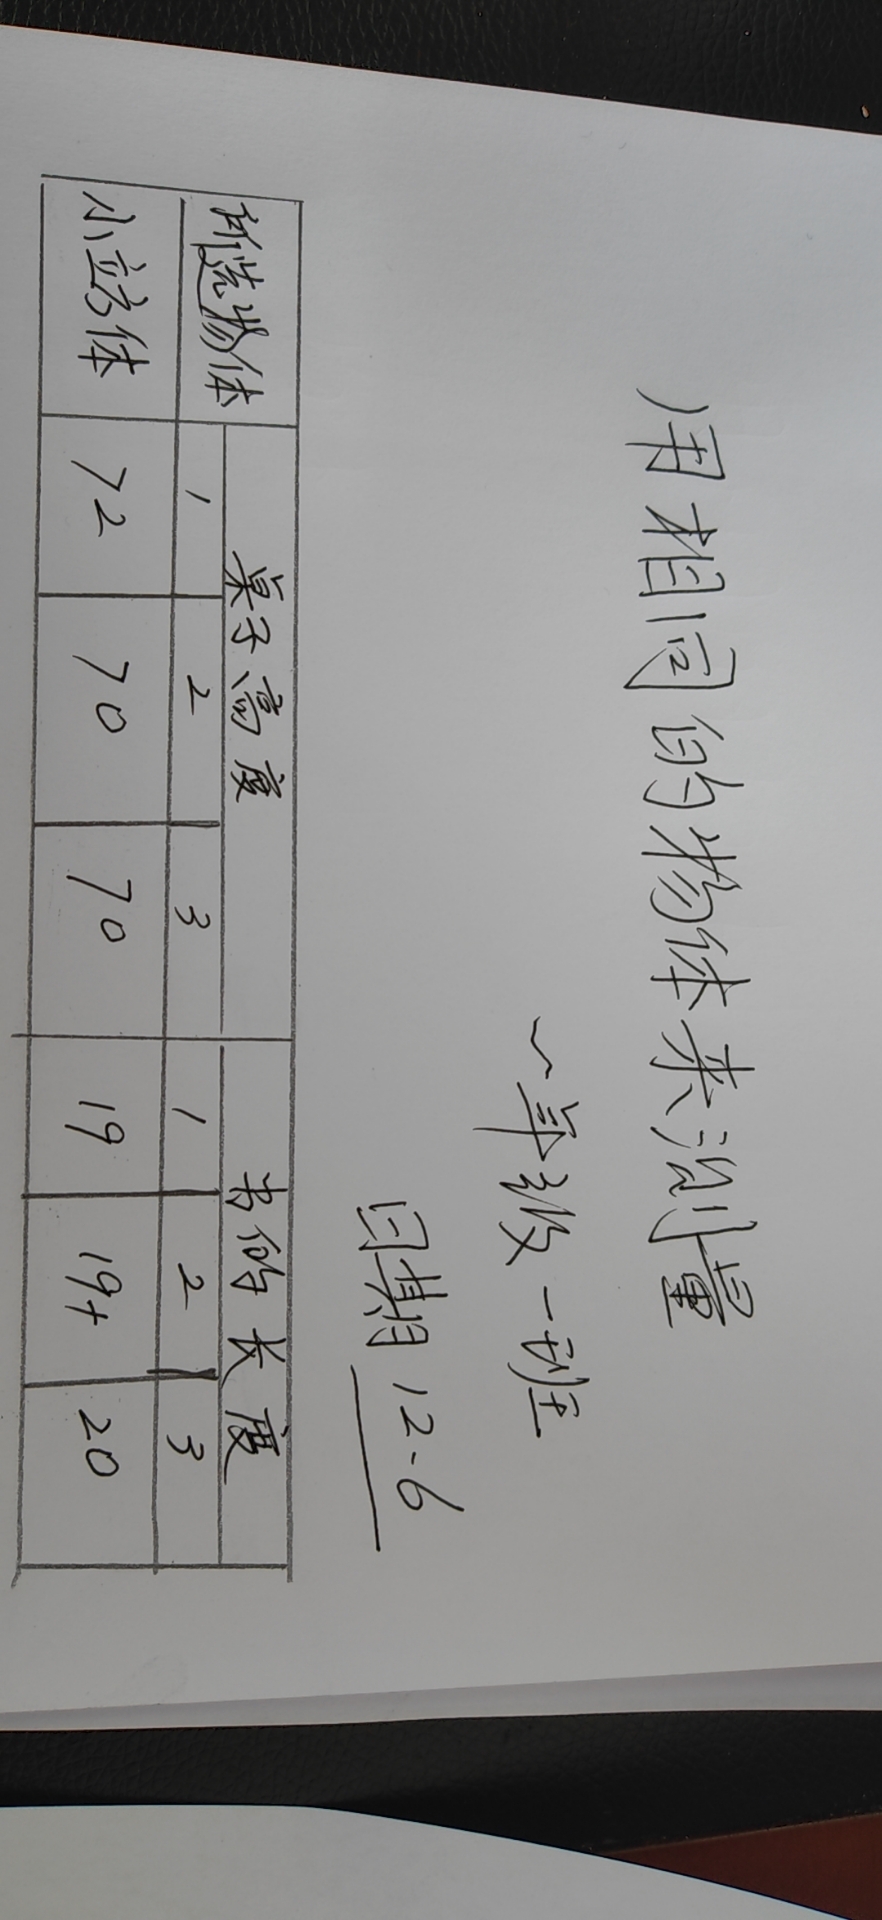 用相同的物体来测量
一年级一班
日期 12-6
所选物体 桌子高度 书的长度
1 2 3 1 2 3
小立方体 72 70 70 19 19+ 20